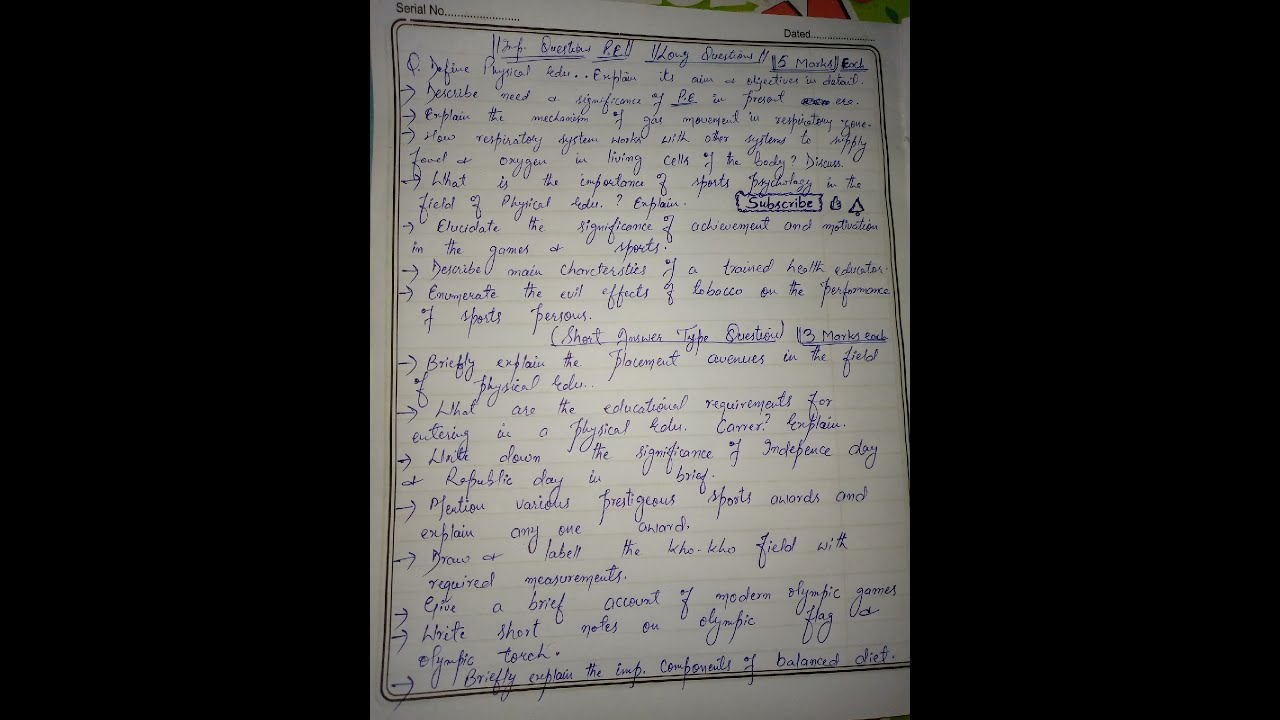 Serial No........................
Dated.....................
||Imp. Questions P.E.|| ||Long Questions|| ||5 Marks|| Each
Q. Define Physical Edu... Explain its aim & objectives in detail.
→ Describe need & significance of P.E in present era.
→ Explain the mechanism of gas movement in respiratory zone.
→ How respiratory system works with other systems to supply
food & oxygen in living cells of the body? Discuss.
→ What is the importance of sports psychology in the
field of Physical Edu. ? Explain. Subscribe
→ Elucidate the significance of achievement and motivation
in the games & sports.
→ Describe main charcterstics of a trained health educator.
→ Enumerate the evil effects of tobacco on the performance
of sports persons.
(Short Answer Type Question) ||3 Marks each
→ Briefly explain the placement avenues in the field
of physical Edu..
→ What are the educational requirements for
entering in a physical Edu. Carrer? Explain.
→ Write down the significance of Indepence day
& Republic day in brief.
→ Mention various prestigeous sports awards and
explain any one award.
→ Draw & labell the kho-kho field with
required measurements.
→ Give a brief account of modern olympic games
→ Write short notes on olympic flag &
olympic torch.
→ Briefly explain the imp. components of balanced diet.